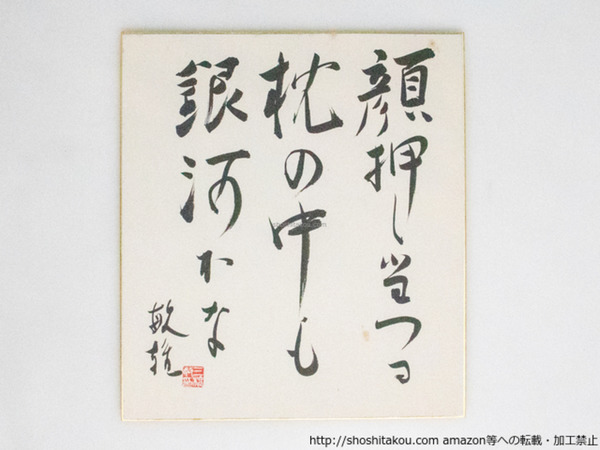 顔押し当つる
枕の中も
銀河かな
敏雄
http://shoshitakou.com amazon等への転載・加工禁止